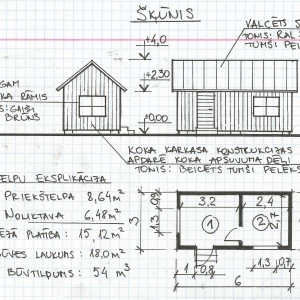 ŠĶŪNIS
VALCĒTS S
TONIS: RAL
TUMŠI PELĒ
+4,0
+2,30
±0,00
GAM
KA RĀMIS
S: GAIŠI
BRŪNS
KOKA KARKASA KONSTRUKCIJAS
APDARE KOKA APŠUVUMA DĒĻI
TONIS: BEICĒTS TUMŠI PELĒKS
ELPU EKSPLIKĀCIJA
PRIEKŠTELPA 8,64 m²
NOLIKTAVA 6,48 m²
PLATĪBA: 15,12 m²
ŪVES LAUKUMS: 18,0 m²
BŪVTILPUMS: 54 m³
3,2 2,4
1,3 0,9
3
1 2
2,7
1 0,8
1,3 0,7
6